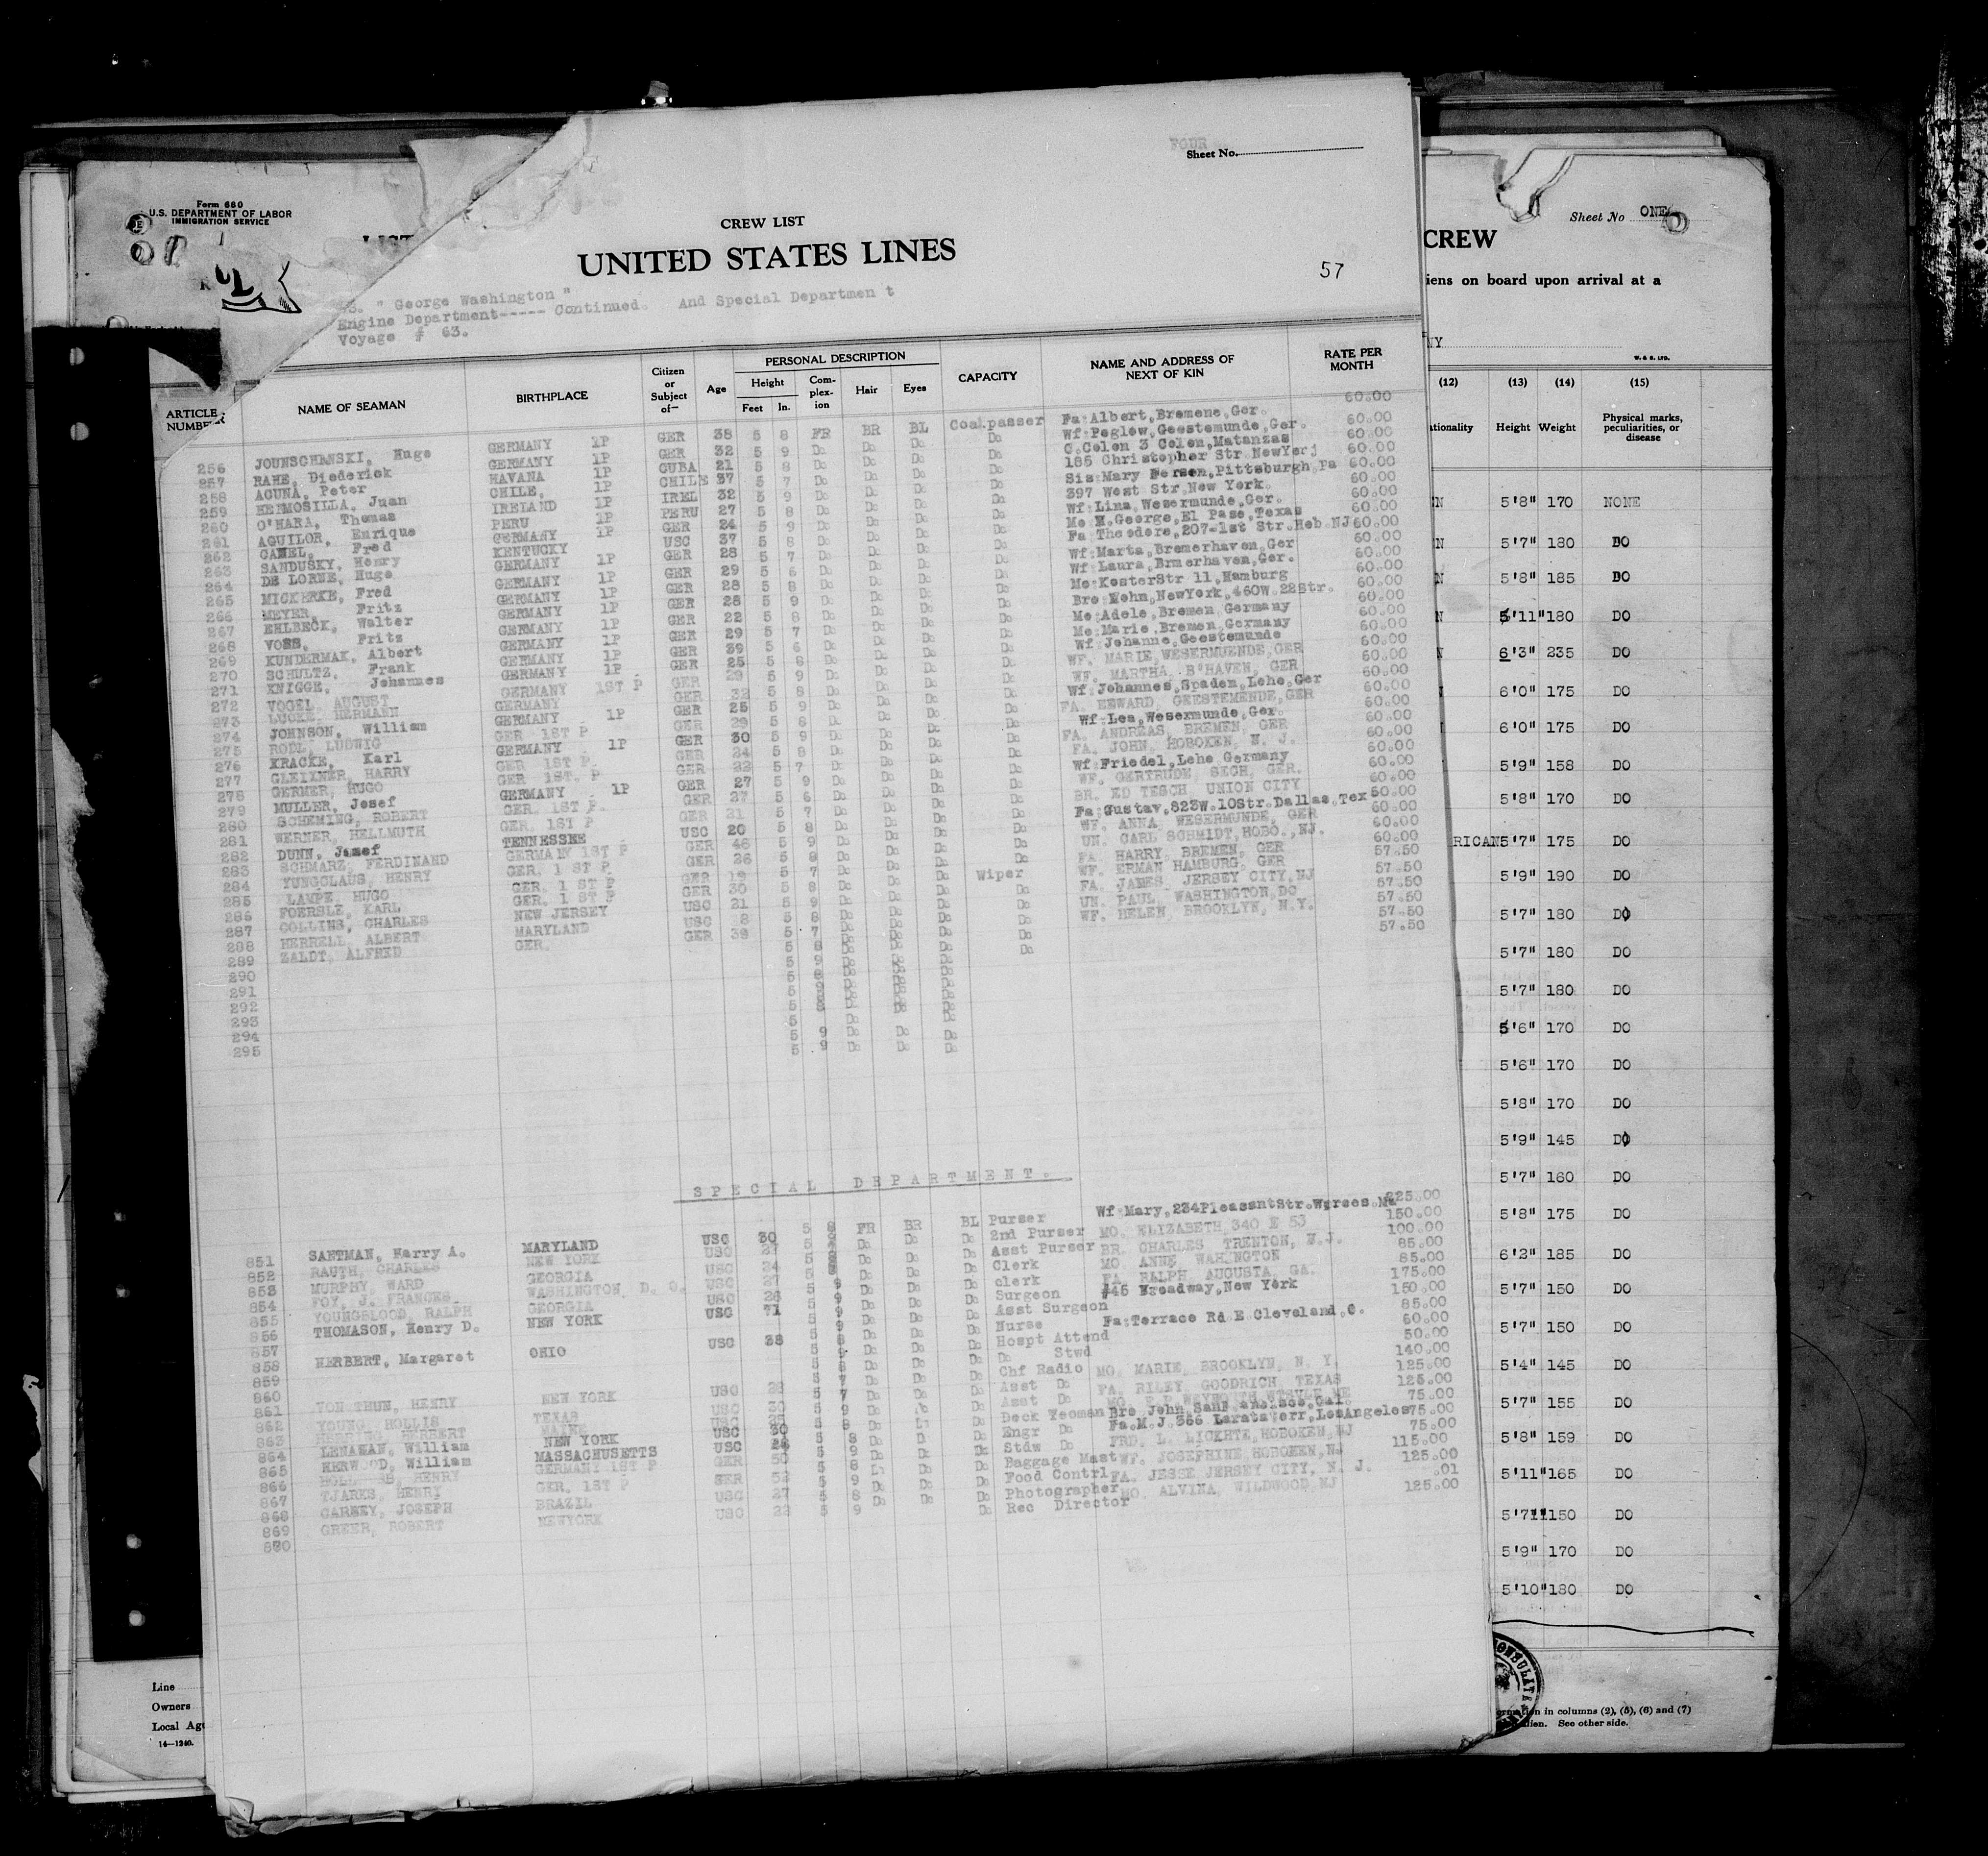 Form 680
U.S. DEPARTMENT OF LABOR
IMMIGRATION SERVICE
LIST
FOUR
Sheet No.
CREW LIST
UNITED STATES LINES
57
" George Washington "
Engine Department----- Continued. And Special Departmen t
Voyage # 63.
ARTICLE NUMBER
NAME OF SEAMAN
BIRTHPLACE
Citizen or Subject of—
Age
PERSONAL DESCRIPTION
Height
Feet In.
Complexion
Hair
Eyes
CAPACITY
NAME AND ADDRESS OF NEXT OF KIN
RATE PER MONTH
256 JOUNSCHANSKI, Hugo GERMANY 1P GER 38 5 8 FR BR BL Coalpasser Fa:Albert,Bremene,Ger. 60.00
257 RAHE, Diederick GERMANY 1P GER 32 5 9 Do Do Do Do Wf:Peglow,Geestemunde,Ger. 60.00
258 ACUNA, Peter HAVANA 1P CUBA 21 5 8 Do Do Do Do C.Colon 3 Colon,Matanzas 60.00
259 HERMOSILLA, Juan CHILE, 1P CHILE 37 5 7 Do Do Do Do 185 Christopher Str NewYorj 60.00
260 O'HARA, Thomas IRELAND 1P IREL 32 5 9 Do Do Do Do Sis:Mary Person,Pittsburgh,Pa 60.00
261 AGUILOR, Enrique PERU 1P PERU 27 5 8 Do Do Do Do 397 West Str,New York. 60.00
262 CAMEL, Fred GERMANY 1P GER 24 5 9 Do Do Do Do Wf:Lina,Wesermunde,Ger. 60.00
263 SANDUSKY, Henry KENTUCKY USC 37 5 8 Do Do Do Do Mo:M.George,El Paso,Texas 60.00
264 DE LORNE, Hugo GERMANY 1P GER 28 5 7 Do Do Do Do Fa:Theodore,207-1st Str.Hob NJ 60.00
265 MICKERKE, Fred GERMANY 1P GER 29 5 6 Do Do Do Do Wf:Marta,Bremerhaven,Ger 60.00
266 MEYER, Fritz GERMANY 1P GER 28 5 8 Do Do Do Do Wf:Laura,Brmerhaven,Ger. 60.00
267 EHLBECK, Walter GERMANY 1P GER 28 5 9 Do Do Do Do Mo:KosterStr 11,Hamburg 60.00
268 VOSS, Fritz GERMANY 1P GER 22 5 8 Do Do Do Do Bro:Kohn,NewYork,460W.22Str. 60.00
269 KUNDERMAK, Albert GERMANY 1P GER 29 5 7 Do Do Do Do Mo:Adele,Bremen,Germany 60.00
270 SCHULTZ, Frank GERMANY 1P GER 39 5 6 Do Do Do Do Mo:Marie,Bremen,Germany 60.00
271 KNIGGE, Johannes GERMANY 1P GER 25 5 8 Do Do Do Do Wf:Johanne,Geestemunde 60.00
272 VOGEL, AUGUST GERMANY 1ST P GER 29 5 9 Do Do Do Do WF. MARIE,WESERMUENDE,GER 60.00
273 LUCKE, HERMANN GERMANY GER 32 5 8 Do Do Do Do WF. MARTHA, B'HAVEN, GER 60.00
274 JOHNSON, William GERMANY 1P GER 25 5 9 Do Do Do Do Wf:Johannes,Spaden,Lehe,Ger 60.00
275 RODL, LUDWIG GER 1ST P GER 29 5 8 Do Do Do Do FA. EDWARD, GEESTEMENDE,GER 60.00
276 KRACKE, Karl GERMANY 1P GER 30 5 9 Do Do Do Do Wf:Lea,Wesermunde,Ger. 60.00
277 GLEIXNER, HARRY GER 1ST P. GER 24 5 8 Do Do Do Do FA. ANDREAS, BREMEN, GER 60.00
278 GERMER, HUGO GER 1ST. P GER 22 5 7 Do Do Do Do FA. JOHN, HOBOKEN, N. J. 60.00
279 MULLER, Josef GERMANY 1P GER 27 5 9 Do Do Do Do Wf:Friedel,Lehe Germany 60.00
280 SCHEMING, ROBERT GER. 1ST P. GER 27 5 6 Do Do Do Do WF. GERTRUDE, SECH, GER. 60.00
281 WERNER, HELLMUTH GER. 1ST P GER 21 5 7 Do Do Do Do BR. ED TESCH, UNION CITY 60.00
282 DUNN, Josef TENNESSEE USC 20 5 8 Do Do Do Do Fa:Gustav,823W.10Str.Dallas,Tex 60.00
283 SCHMARZ, FERDINAND GERMANY 1ST P GER 46 5 9 Do Do Do Do WF. ANNA, WESERMUNDE, GER 60.00
284 YUNGCLAUS, HENRY GER. 1 ST P. GER 26 5 8 Do Do Do Do UN. CARL SCHMIDT,HOBO.,NJ. 60.00
285 LAMPE, HUGO GER. 1 ST P GER 19 5 7 Do Do Do Wiper FA. HARRY, BREMEN, GER 57.50
286 FOERSLZ, KARL GER. 1 ST P GER 30 5 8 Do Do Do Do WF. ERMAN HAMBURG, GER 57.50
287 COLLINS, CHARLES NEW JERSEY USC 21 5 9 Do Do Do Do FA. JAMES, JERSEY CITY,NJ 57.50
288 HERRELL, ALBERT MARYLAND USC 8 5 8 Do Do Do Do UN. PAUL, WASHINGTON,DC 57.50
289 ZALDT, ALFRED GER. GER 39 5 7 Do Do Do Do WF. HELEN, BROOKLYN, N.Y. 57.50
290 5 8 Do Do Do 57.50
291 5 9 Do Do Do
292 5 8 Do Do Do
293 5 Do
294 5 9 Do Do Do
295 5 9 Do Do Do
SPECIAL DEPARTMENT.
851 SAETMAN, Harry A. MARYLAND USC 30 5 8 FR BR BL Purser Wf:Mary,234PleasantStr. 225.00
852 RAUTH, CHARLES NEW YORK USC 27 5 Do Do Do 2nd Purser MO. ELIZABETH,340 E 53 150.00
853 MURPHY, WARD GEORGIA USC 24 5 8 Do Do Do Asst Purser BR. CHARLES TRENTON, N.J. 100.00
854 FOY, J. FRANCES WASHINGTON, D. C. USC 27 5 Do Do Do Clerk MO ANNE WAHINGTON 85.00
855 YOUNGBLOOD, RALPH GEORGIA USC 26 5 9 Do Do Do clerk FA. RALPH, AUGUSTA, GA. 85.00
856 THOMASON, Henry D. NEW YORK USC 71 5 9 Do Do Do Surgeon #45 Broadway,New York 175.00
857 5 9 Do Do Do Asst Surgeon 150.00
858 HERBERT, Margaret OHIO USC 38 5 8 Do Do Do Nurse Fa:Terrace Rd E Cleveland,O. 85.00
859 5 Do Do Do Hospt Attend 60.00
860 5 8 Do Do Do Do Stwd 50.00
861 VON THUN, HENRY NEW YORK USC 28 5 7 Do Do Do Chf Radio MO. MARIE, BROOKLYN, N. Y. 140.00
862 YOUNG, HOLLIS TEXAS USC 30 5 7 Do Do Do Asst Do FA. RILEY, GOODRICH, TEXAS 125.00
863 HERBERT MAINE USC 25 5 9 Do Do Asst Do MO. 125.00
864 LENAHAN, William NEW YORK USC 30 5 8 Do Do Deck Yeoman Bro John, 75.00
865 HERWOOD, William MASSACHUSETTS USC 5 8 Do Do Do Engr Do Fa.M.J.366 LarataTerr,LosAngeles 75.00
866 HENRY GERMANY 1ST P GER 50 5 9 Do Do Do Stdw Do FRD. L. LICKHTE,HOBOKEN,NJ 75.00
867 TJARKS, HENRY GER. 1ST P GER 52 5 8 Do Do Baggage Mast WF. JOSEPHINE,HOBOKEN,NJ 115.00
868 CARNEY, JOSEPH BRAZIL USC 27 5 9 Do Do Do Food Contrl FA. JESSE JERSEY CITY, N. J. 125.00
869 GREER, ROBERT NEWYORK USC 22 5 8 Do Do Do Photographer MO. ALVINA, WILDWOOD,NJ .01
870 5 9 Do Rec Director 125.00
Sheet No ONE
CREW
iens on board upon arrival at a
NY
W. & S. LTD.
(12) (13) (14) (15)
tionality Height Weight Physical marks, peculiarities, or disease
N 5'8" 170 NONE
N 5'7" 180 DO
N 5'8" 185 DO
N 5'11" 180 DO
6'3" 235 DO
6'0" 175 DO
6'0" 175 DO
5'9" 158 DO
5'8" 170 DO
RICAN 5'7" 175 DO
5'9" 190 DO
5'7" 180 DO
5'7" 180 DO
5'7" 180 DO
5'6" 170 DO
5'6" 170 DO
5'8" 170 DO
5'9" 145 DO
5'7" 160 DO
5'8" 175 DO
6'2" 185 DO
5'7" 150 DO
5'7" 150 DO
5'4" 145 DO
5'7" 155 DO
5'8" 159 DO
5'11" 165 DO
5'7" 150 DO
5'9" 170 DO
5'10" 180 DO
Line
Owners
Local Age
14—1240.
in columns (2), (5), (6) and (7)
lien. See other side.